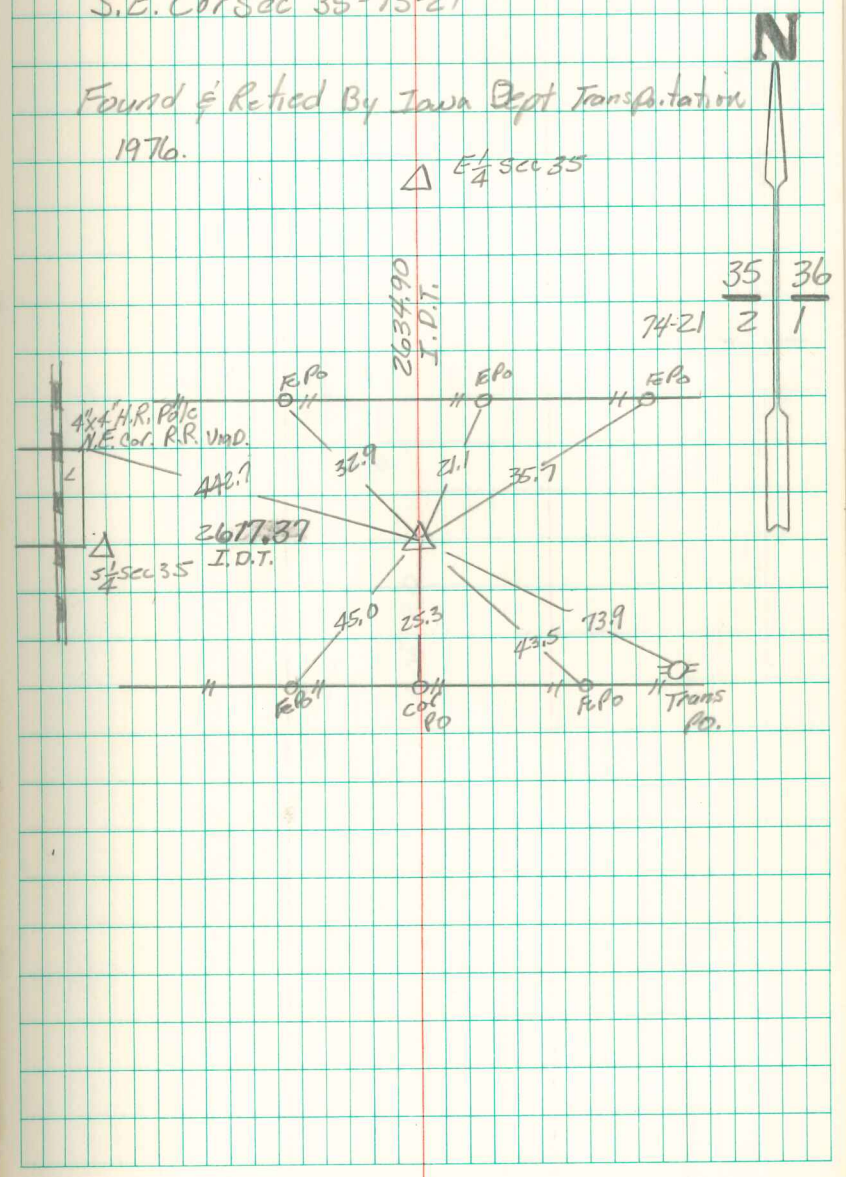 S.E. Cor Sec 35-75-21
N
Found & Retied By Iowa Dept Transportation
1976.
E 1/4 Sec 35
2634.90
I.D.T.
35 36
2 1
74-21
Fc Po
Fc Po
Fc Po
4"x4" H.R. Po
N.E. Cor. R.R.
442.7
32.9
21.1
35.7
2677.37
I.D.T.
S 1/4 Sec 35
45.0
25.3
43.5
73.9
Fc Po
Cor
Po
Fc Po
Trans
Po.